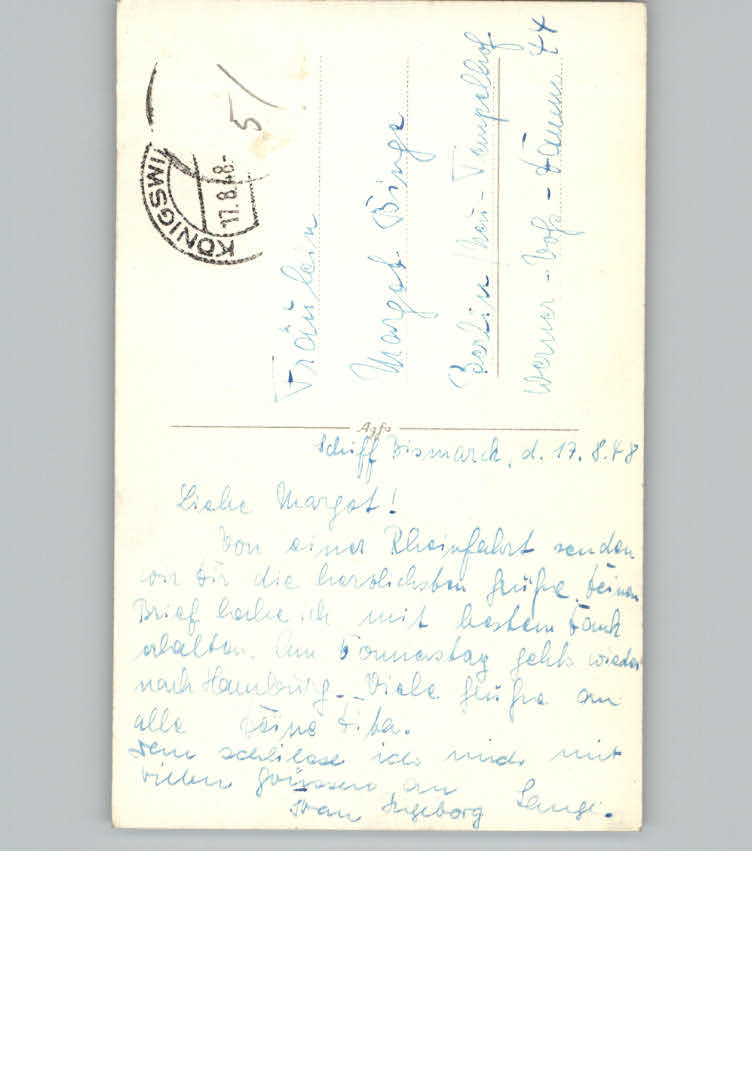 KÖNIGS
17.8.48-
5/
Fräulein
Margot Binge
Berlin / Neu-Tempelhof
Werner-Voß-Damm 44
Agfa
Schiff Bismarck, d. 17.8.48
Liebe Margot!
Von einer Rheinfahrt senden
wir Dir die herzlichsten Grüße. Deinen
Brief habe ich mit bestem Dank
erhalten. Am Donnerstag gehts wieder
nach Hamburg. Viele Grüße an
alle Deine
Dem schliesse ich mich mit
vielen Grüssen an
Frau Ingeborg Lange.